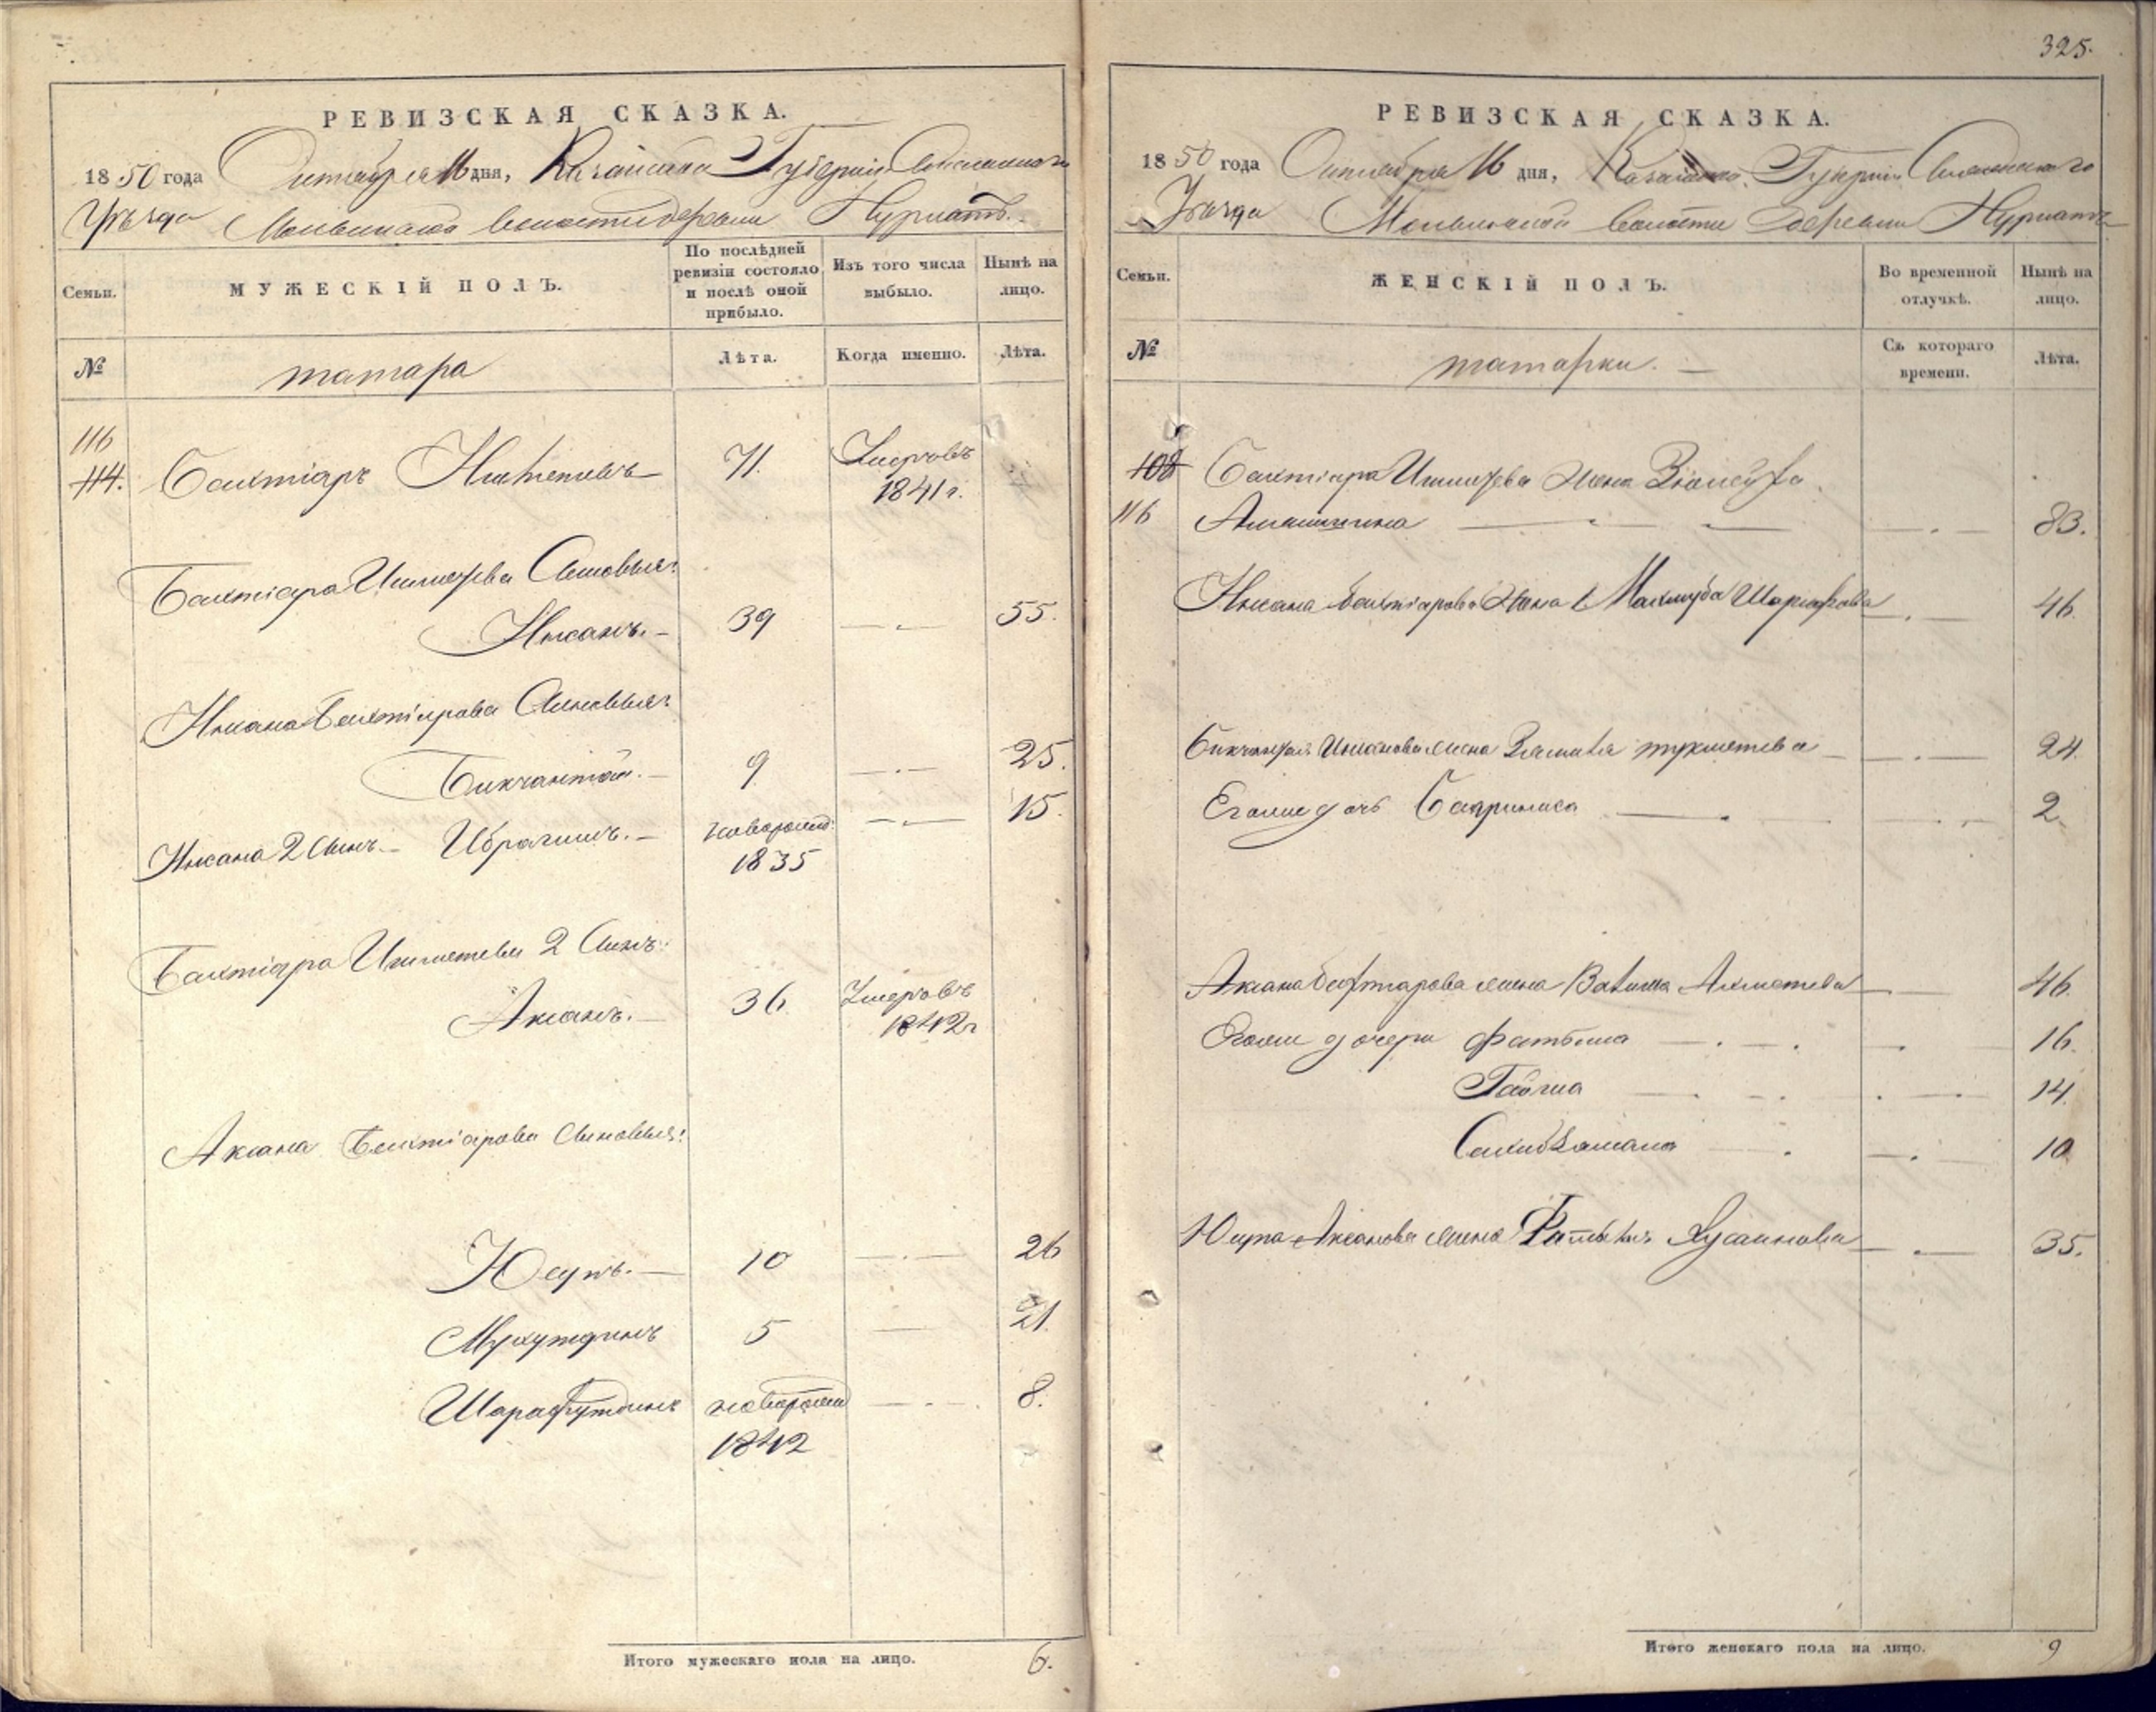 РЕВИЗСКАЯ СКАЗКА.
1850 года Октября 16 дня, Казанской Губернiи
Уѣзда волости деревни Нурлатъ.
Семьи.
МУЖЕСКІЙ ПОЛЪ.
По послѣдней ревизіи состояло и послѣ оной прибыло.
Изъ того числа выбыло.
Нынѣ на лицо.
№
татара
Лѣта.
Когда именно.
Лѣта.
116
114. Бахтіяръ Ишметевъ 71. Умеръ въ
1841 г.
Бахтіяра Ишметева Сыновья:
Иксанъ. 39 55.
Иксана Бахтіярова Сыновья:
Бикчантай. 9 25.
Иксана 2 Сынъ. Ибрагимъ. новорожд: 15.
1835
Бахтіяра Ишметева 2 Сынъ:
Аксанъ. 36. Умеръ въ
1842 г
Аксана Бахтіярова Сыновья:
Юсупъ. 10 26
5 21.
Шарафутдинъ новорожд 8.
1842
Итого мужескаго пола на лицо. 6.
325.
РЕВИЗСКАЯ СКАЗКА.
1850 года Октября 16 дня, Казанской Губернiи
Уѣзда волости деревни Нурлатъ
Семьи.
ЖЕНСКІЙ ПОЛЪ.
Во временной отлучкѣ.
Нынѣ на лицо.
№
татарки.
Съ котораго времени.
Лѣта.
108 Бахтіяра Ишметева жена
116 83.
Иксана Бахтіярова жена Махмуба Шарифова 46.
Бикчантая Иксанова жена 24.
Его же дочь 2.
Аксана Бахтіарова жена Ахметева 46.
Его же дочери Фатыма 16.
14.
10
Юсупа Аксанова жена Хусаинова 35.
Итого женскаго пола на лицо. 9